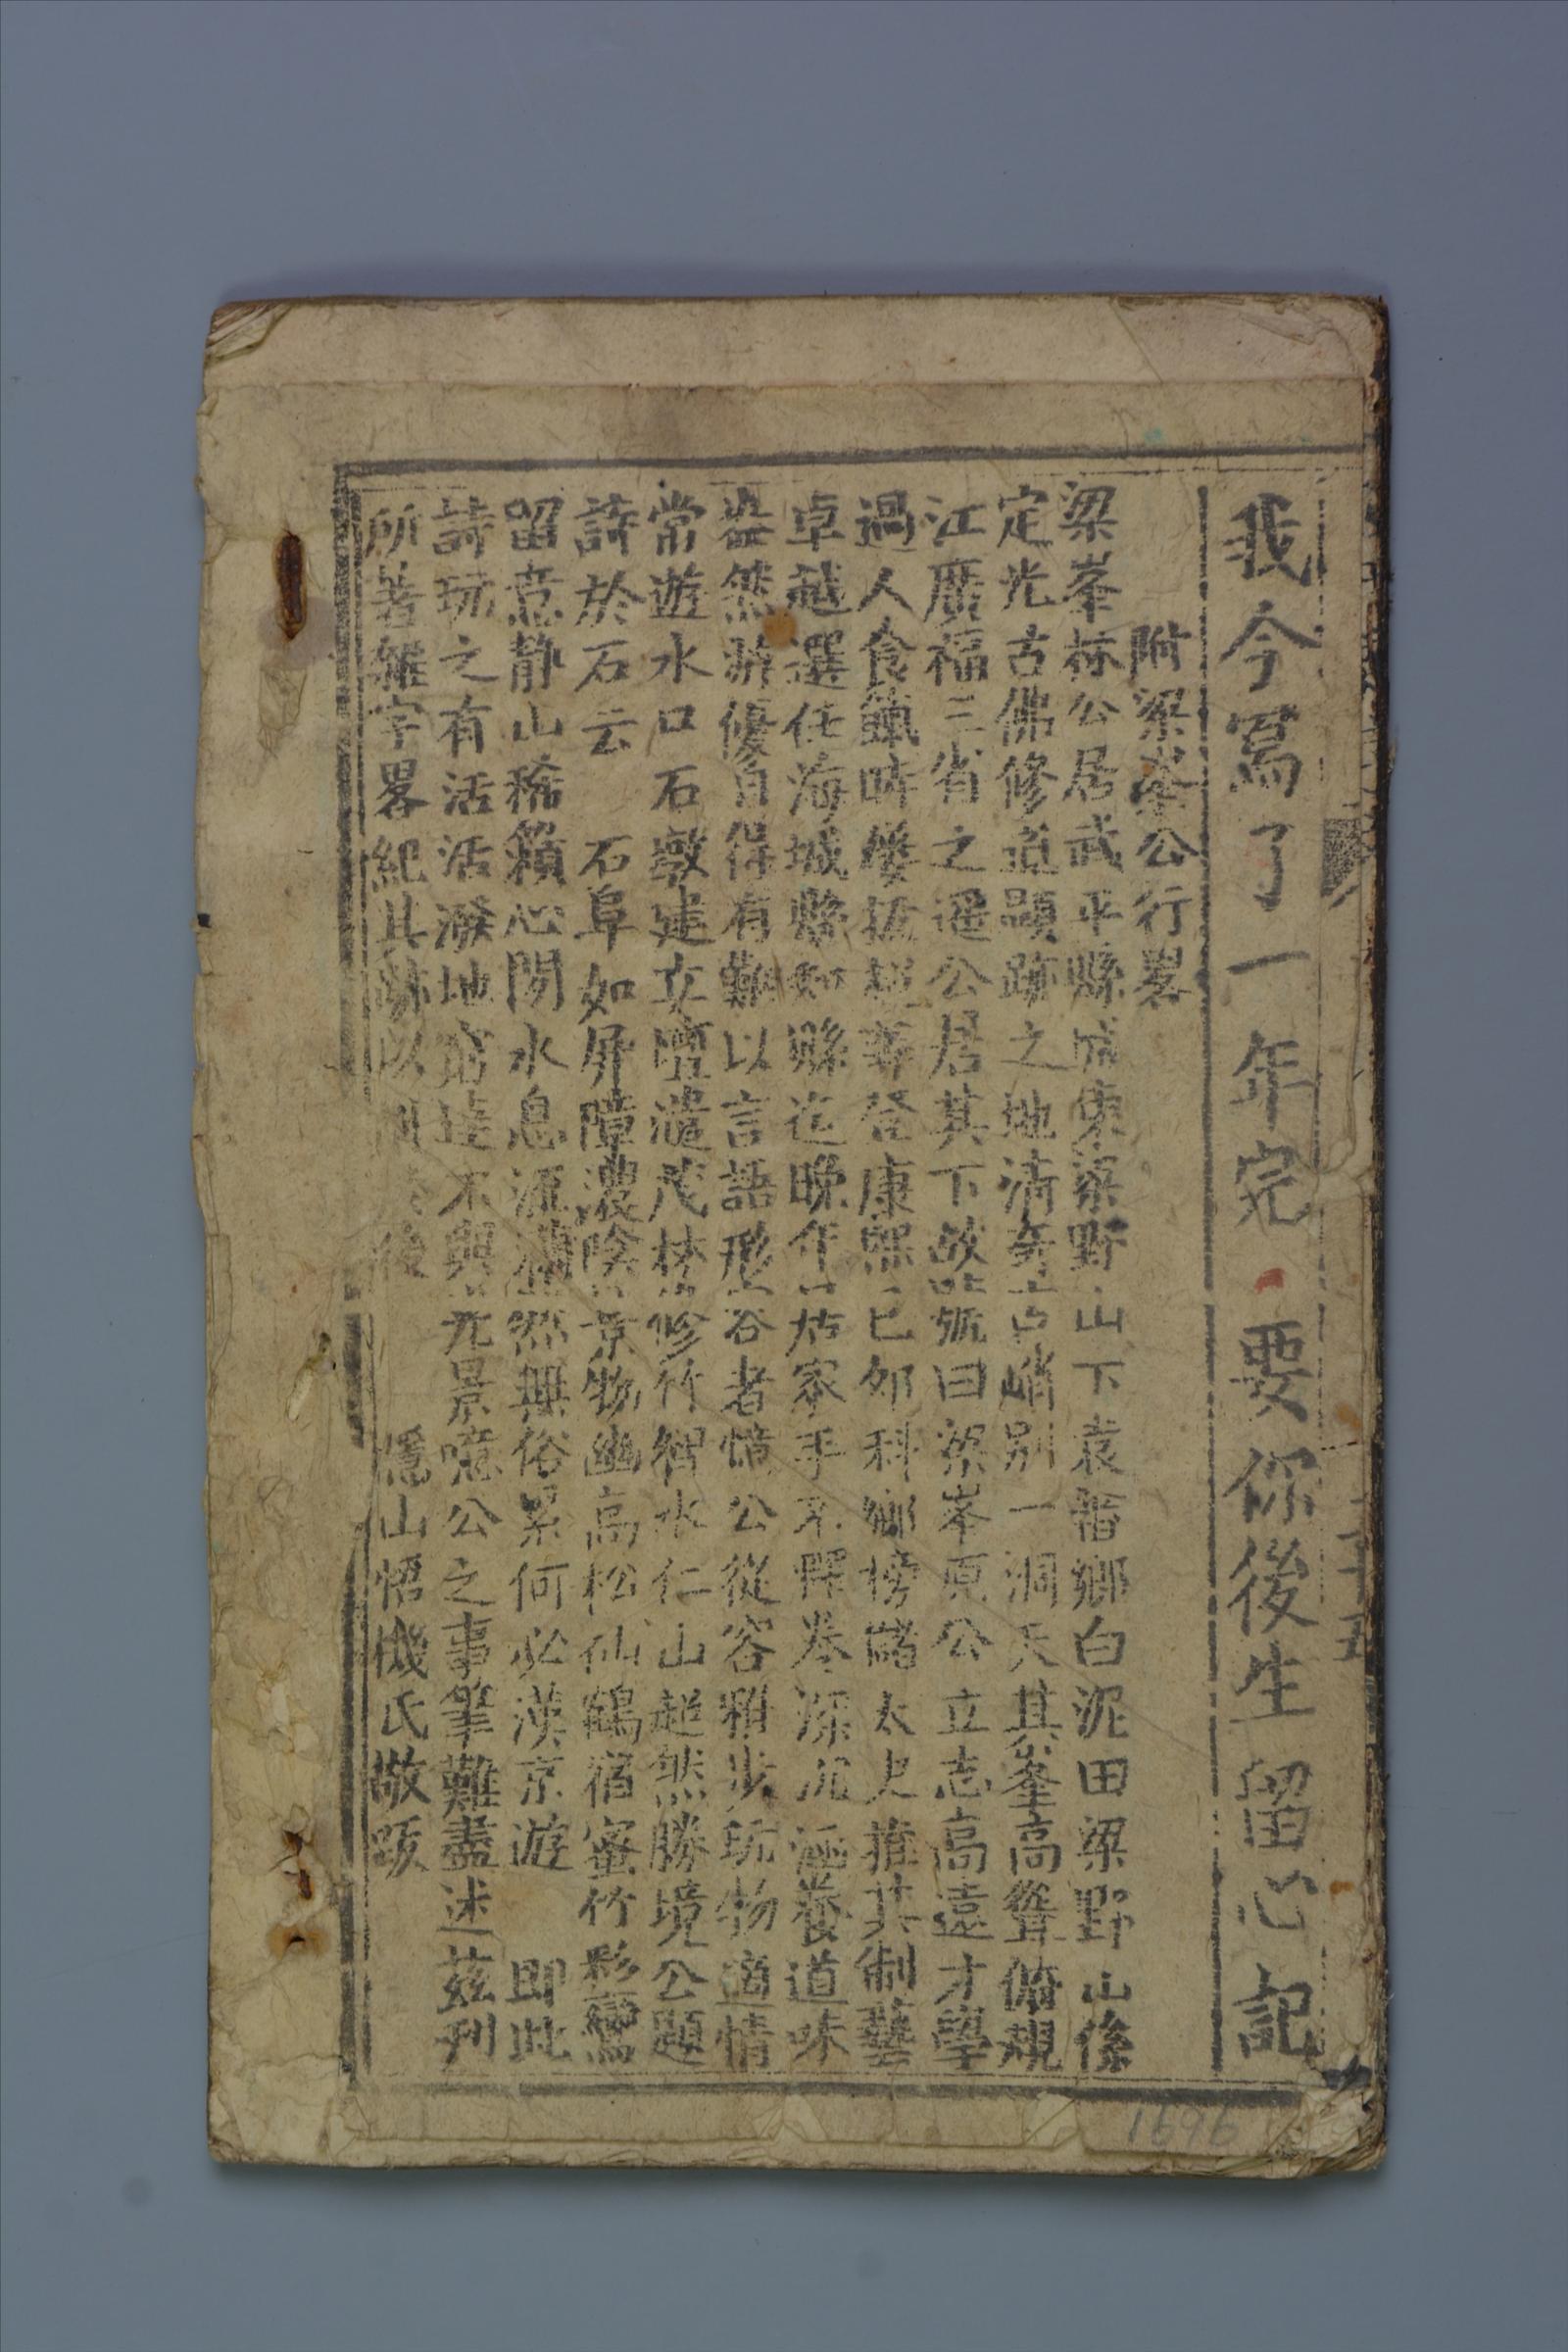 我今寫了一年完要你後生留心記
附梁峯公行畧
梁峯林公居武平縣城東梁野山下袁畬鄉白泥田梁野山係
定光古佛修道顯跡之地清奇古峭別一洞天其峯高聳俯覌
江廣福三省之遥公居其下故號曰梁峯原公立志高遠才學
過人食餼時屢拔超等登康熙己夘科鄉榜諸太史推其制藝
卓越選任海城縣知縣迄晚年居家手不釋卷深沉涵養道味
盎然游優自得有難以言語形容者憶公從容雅步玩物適情
常遊水口石墩建文壇濃茂林修竹智水仁山超然勝境公題
詩於石云 石阜如屏障濃陰景物幽高松仙鶴宿蜜竹彩鸞
留意静山稀籟心閒水息流蕭然無俗累何必漢京遊 即此
詩玩之有活活潑地窮達不與光景噫公之事筆難盡述茲刋
所著雜字畧紀其跡以 後 隱山悟機氏敬跋
二十五
1696